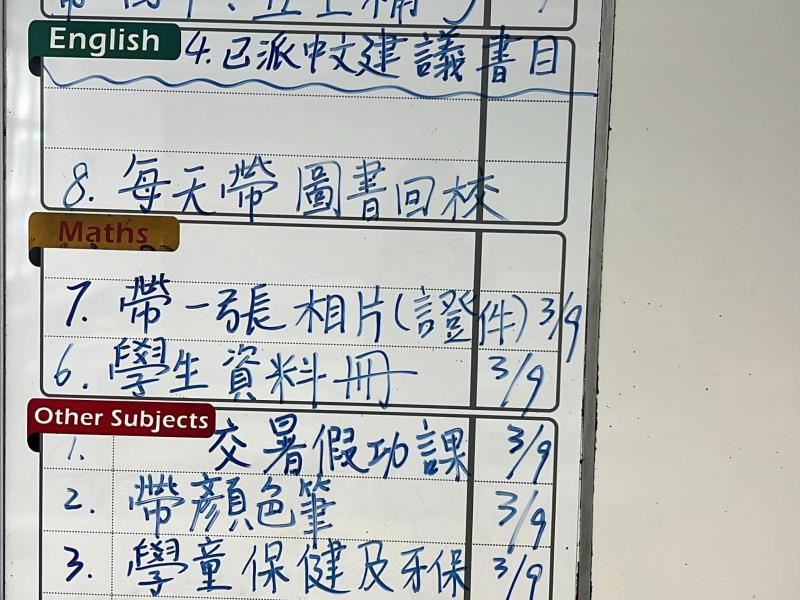 English
4. 已派中文建議書目
8. 每天帶圖書回校
Maths
7. 帶一張相片(證件) 3/9
6. 學生資料冊 3/9
Other Subjects
1. 交暑假功課 3/9
2. 帶顏色筆 3/9
3. 學童保健及牙保 3/9